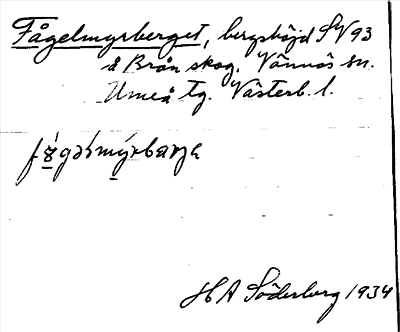 Fågelmyrberget, bergshöjd SV 93
å Brån skog. Vännäs sn.
Umeå tg. Västerb. l.
HA Söderberg 1934